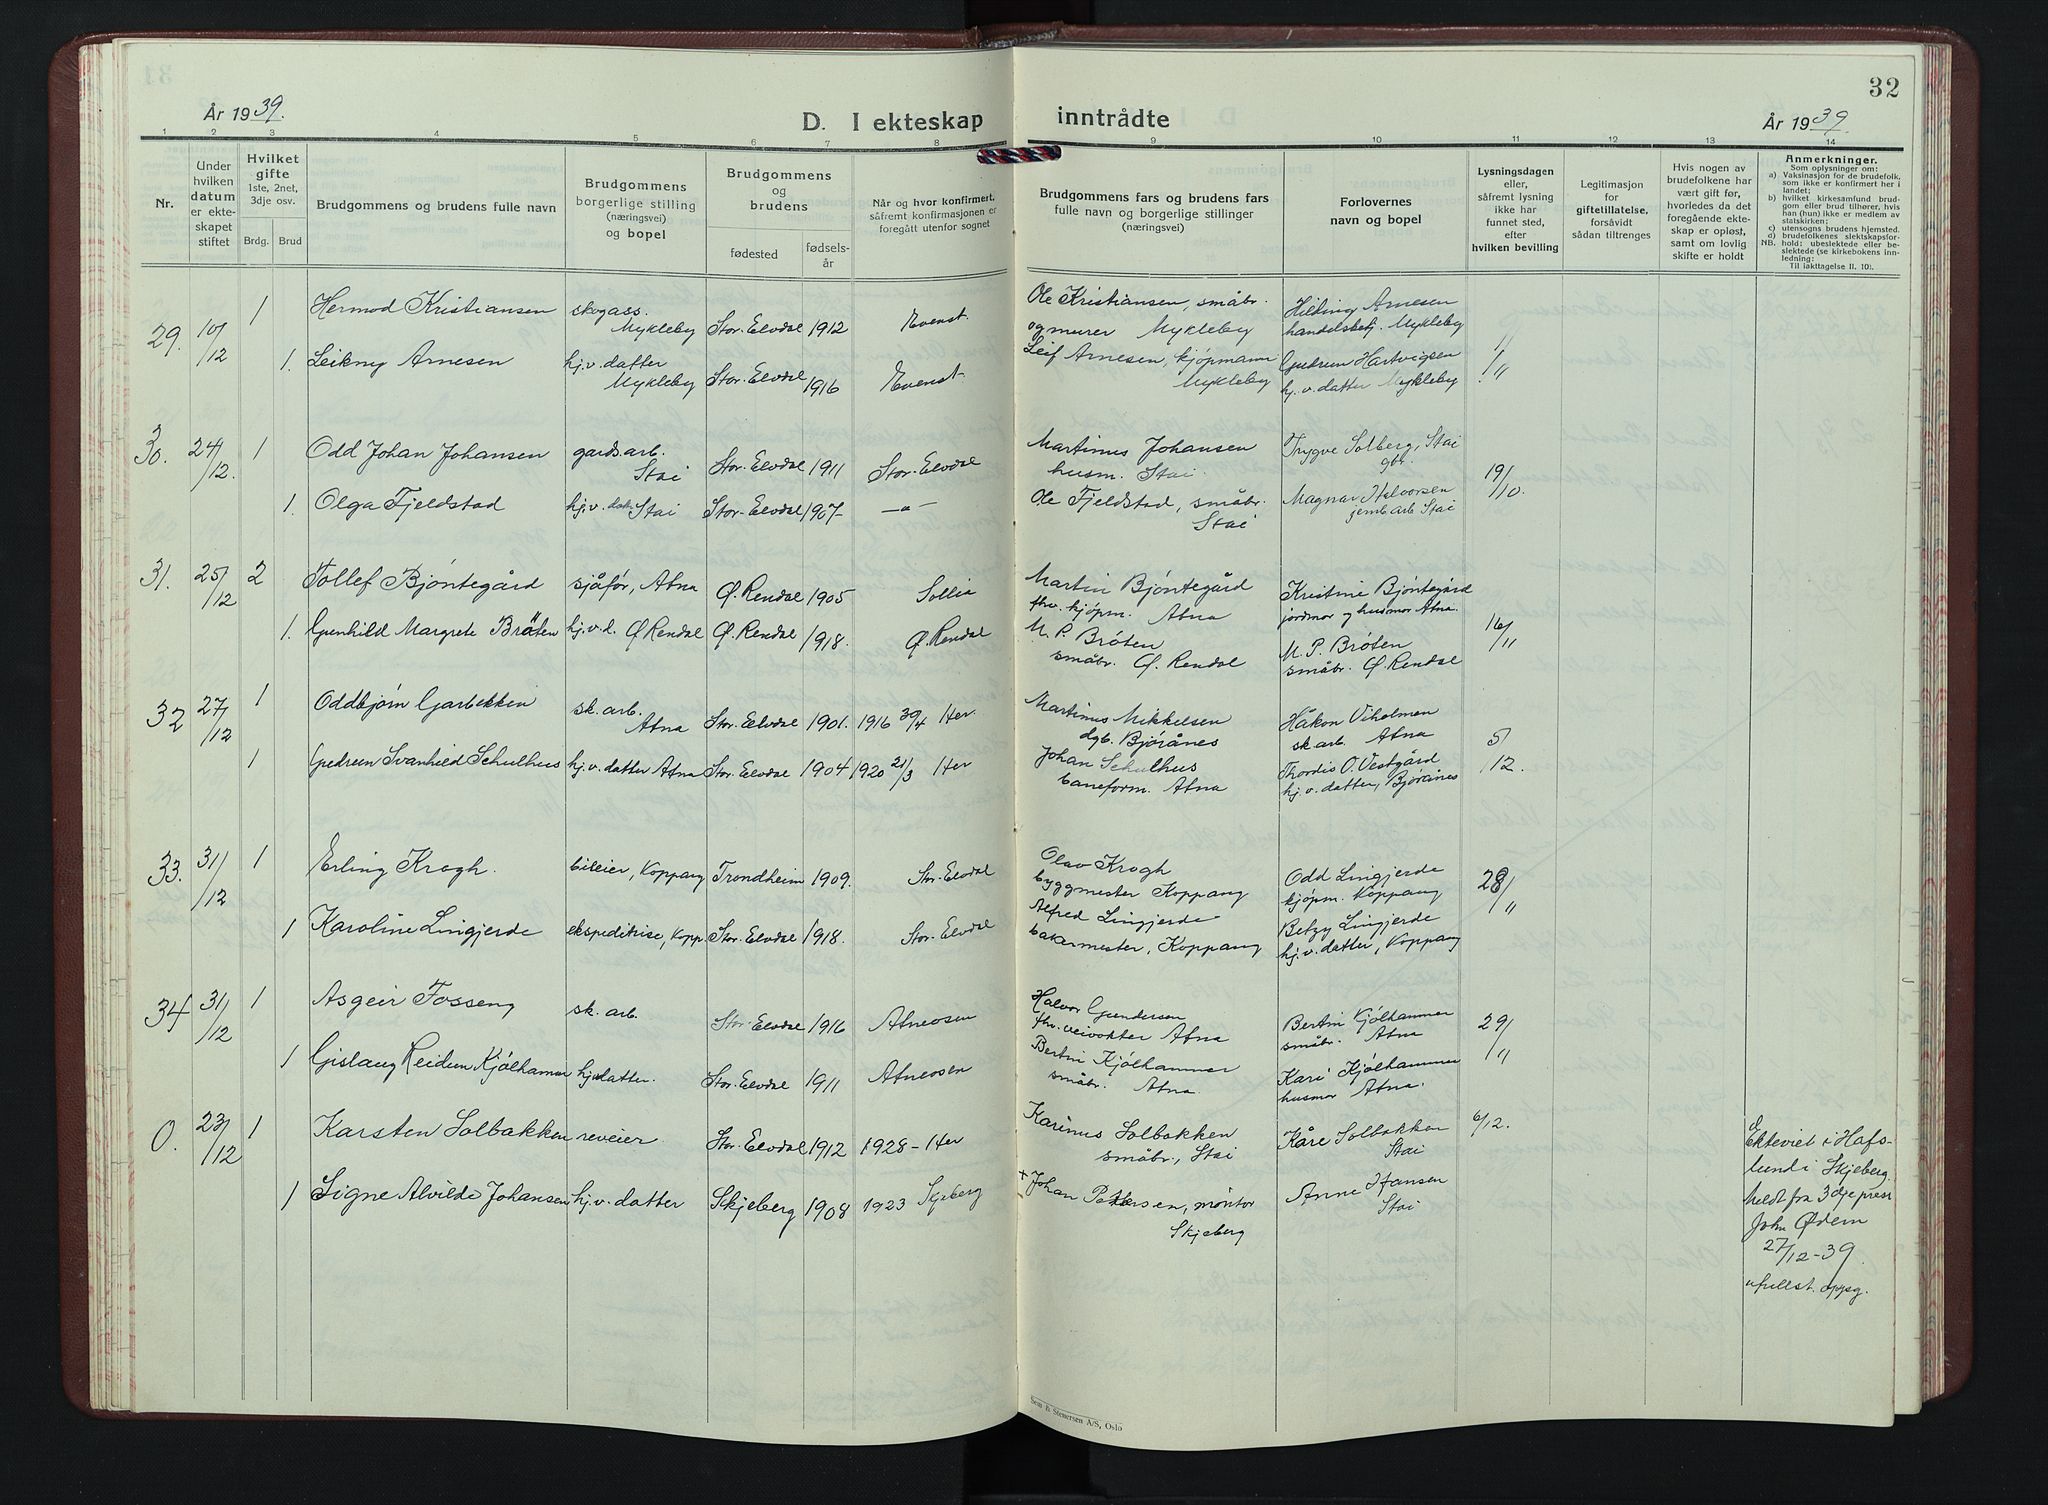 År 1939.
D. I ekteskap
1 2 3 4 5 6 7 8
Nr.
Under hvilken datum er ekteskapet stiftet
Hvilket gifte
1ste, 2net, 3dje osv.
Brdg. Brud
Brudgommens og brudens fulle navn
Brudgommens borgerlige stilling (næringsvei) og bopel
Brudgommens og brudens
fødested
fødsels-år
Når og hvor konfirmert, såfremt konfirmasjonen er foregått utenfor sognet
29. 10/12 1 Hermod Kristiansen skogass. Mykleby Stor-Elvdal 1912 Evenst.
1. Leikny Arnesen hj.v. datter Mykleby Stor-Elvdal 1916 Evenst.
30. 24/12. 1 Odd Johan Johansen gardsarb. Stai Stor-Elvdal 1911 Stor-Elvdal
1. Olga Fjeldstad hj.v. dat. Stai Stor-Elvdal 1907 —"—
31. 25/12 2 Tollef Bjøntegård sjåfør, Atna Ø. Rendal 1905 Sollia
1. Gunhild Margrete Bråten hj.v.d. Ø Rendal Ø. Rendal 1918. Ø. Rendal
32 27/12 1 Oddbjørn Garbekken sk. arb. Atna Stor-Elvdal 1901. 1916 30/4 Her.
1 Gudrun Svanhild Schulhus hj.v. datter Atna Stor-Elvdal 1904 1920 21/3 Her
33. 31/12 1 Erling Krogh. bileier, Koppang Trondheim 1909. Stor-Elvdal
1 Karoline Lingjerde ekspeditrise, Kopp. Stor-Elvdal 1918. Stor-Elvdal
34 31/12 1 Asgeir Fosseng sk. arb. Stor-Elvdal 1916 Atneosen
1 Gislaug Reidun Kjølhamar hj.v datter. Stor-Elvdal 1911 Atneosen
0. 23/12 1 Karsten Solbakken reveier. Stor-Elvdal 1912 1928 - Her
1 Signe Alvilde Johansen hj.v. datter Skjeberg 1908 1923 Skjeberg
32
inntrådte
År 1939.
9 10 11 12 13 14
Brudgommens fars og brudens fars fulle navn og borgerlige stillinger (næringsvei)
Forlovernes navn og bopel
Lysningsdagen eller, såfremt lysning ikke har funnet sted, efter hvilken bevilling
Legitimasjon for giftetillatelse, forsåvidt sådan tiltrenges
Hvis nogen av brudefolkene har vært gift før, hvorledes da det foregående ekteskap er opløst, samt om lovlig skifte er holdt
Anmerkninger.
Som oplysninger om:
a) Vaksinasjon for de brudefolk, som ikke er konfirmert her i landet;
b) hvilket kirkesamfund brudgom eller brud tilhører, hvis han (hun) ikke er medlem av statskirken;
c) utensogns brudens hjemsted.
d) brudefolkenes slektskapsforhold: ubeslektede eller beslektede (se kirkebokens innledning:
NB. Til iakttagelse II. 10).
Ole Kristiansen, småbr. og murer Mykleby
Hilding Arnesen handelsbetj. Mykleby
Leif Arnesen, kjøpmann Mykleby
Gudrun Hartvigsen hj.v. datter Mykleby
1/11
Martinus Johansen husm. Stai.
Trygve Solberg, Stai gbr.
19/10.
Ole Fjeldstad, småbr. Stai
Magnar Halvorsen jernb arb Stai
Martin Bjøntegård fhv. kjøpm. Atna
Kristine Bjøntegård jordmor og husmor Atna.
16/11
M. P. Bråten småbr. Ø. Rendal
M. P. Bråten småbr. Ø. Rendal
Martinus Mikkelsen dgb. Bjørånes
Håkon Viholmen sk arb. Atna
5/12.
Johan Schulhus baneform. Atna
Thordis O. Vestgård hj. v. datter, Bjørånes
Olav Krogh byggmester Koppang
Odd Lingjerde kjøpm. Koppang
28/11
Alfred Lingjerde bakermester, Koppang
Betzy Lingjerde hj.v. datter, Koppang
Halvor Gundersen fhv. veivokter Atna
Bertin Kjølhammer småbr. Atna
29/11
Bertin Kjølhammer småbr. Atna
Kari Kjølhammer husmor Atna.
Karinus Solbakken småbr., Stai
Kåre Solbakken Stai
6/12.
+ Johan Pettersen, montør Skjeberg
Anne Hansen Stai
Ekteviet i Hafs-
lund i Skjeberg.
Meldt fra 3dje prest
John Ødem
27/12-39
ufullst. oppg.
Sem & Stenersen A/S, Oslo